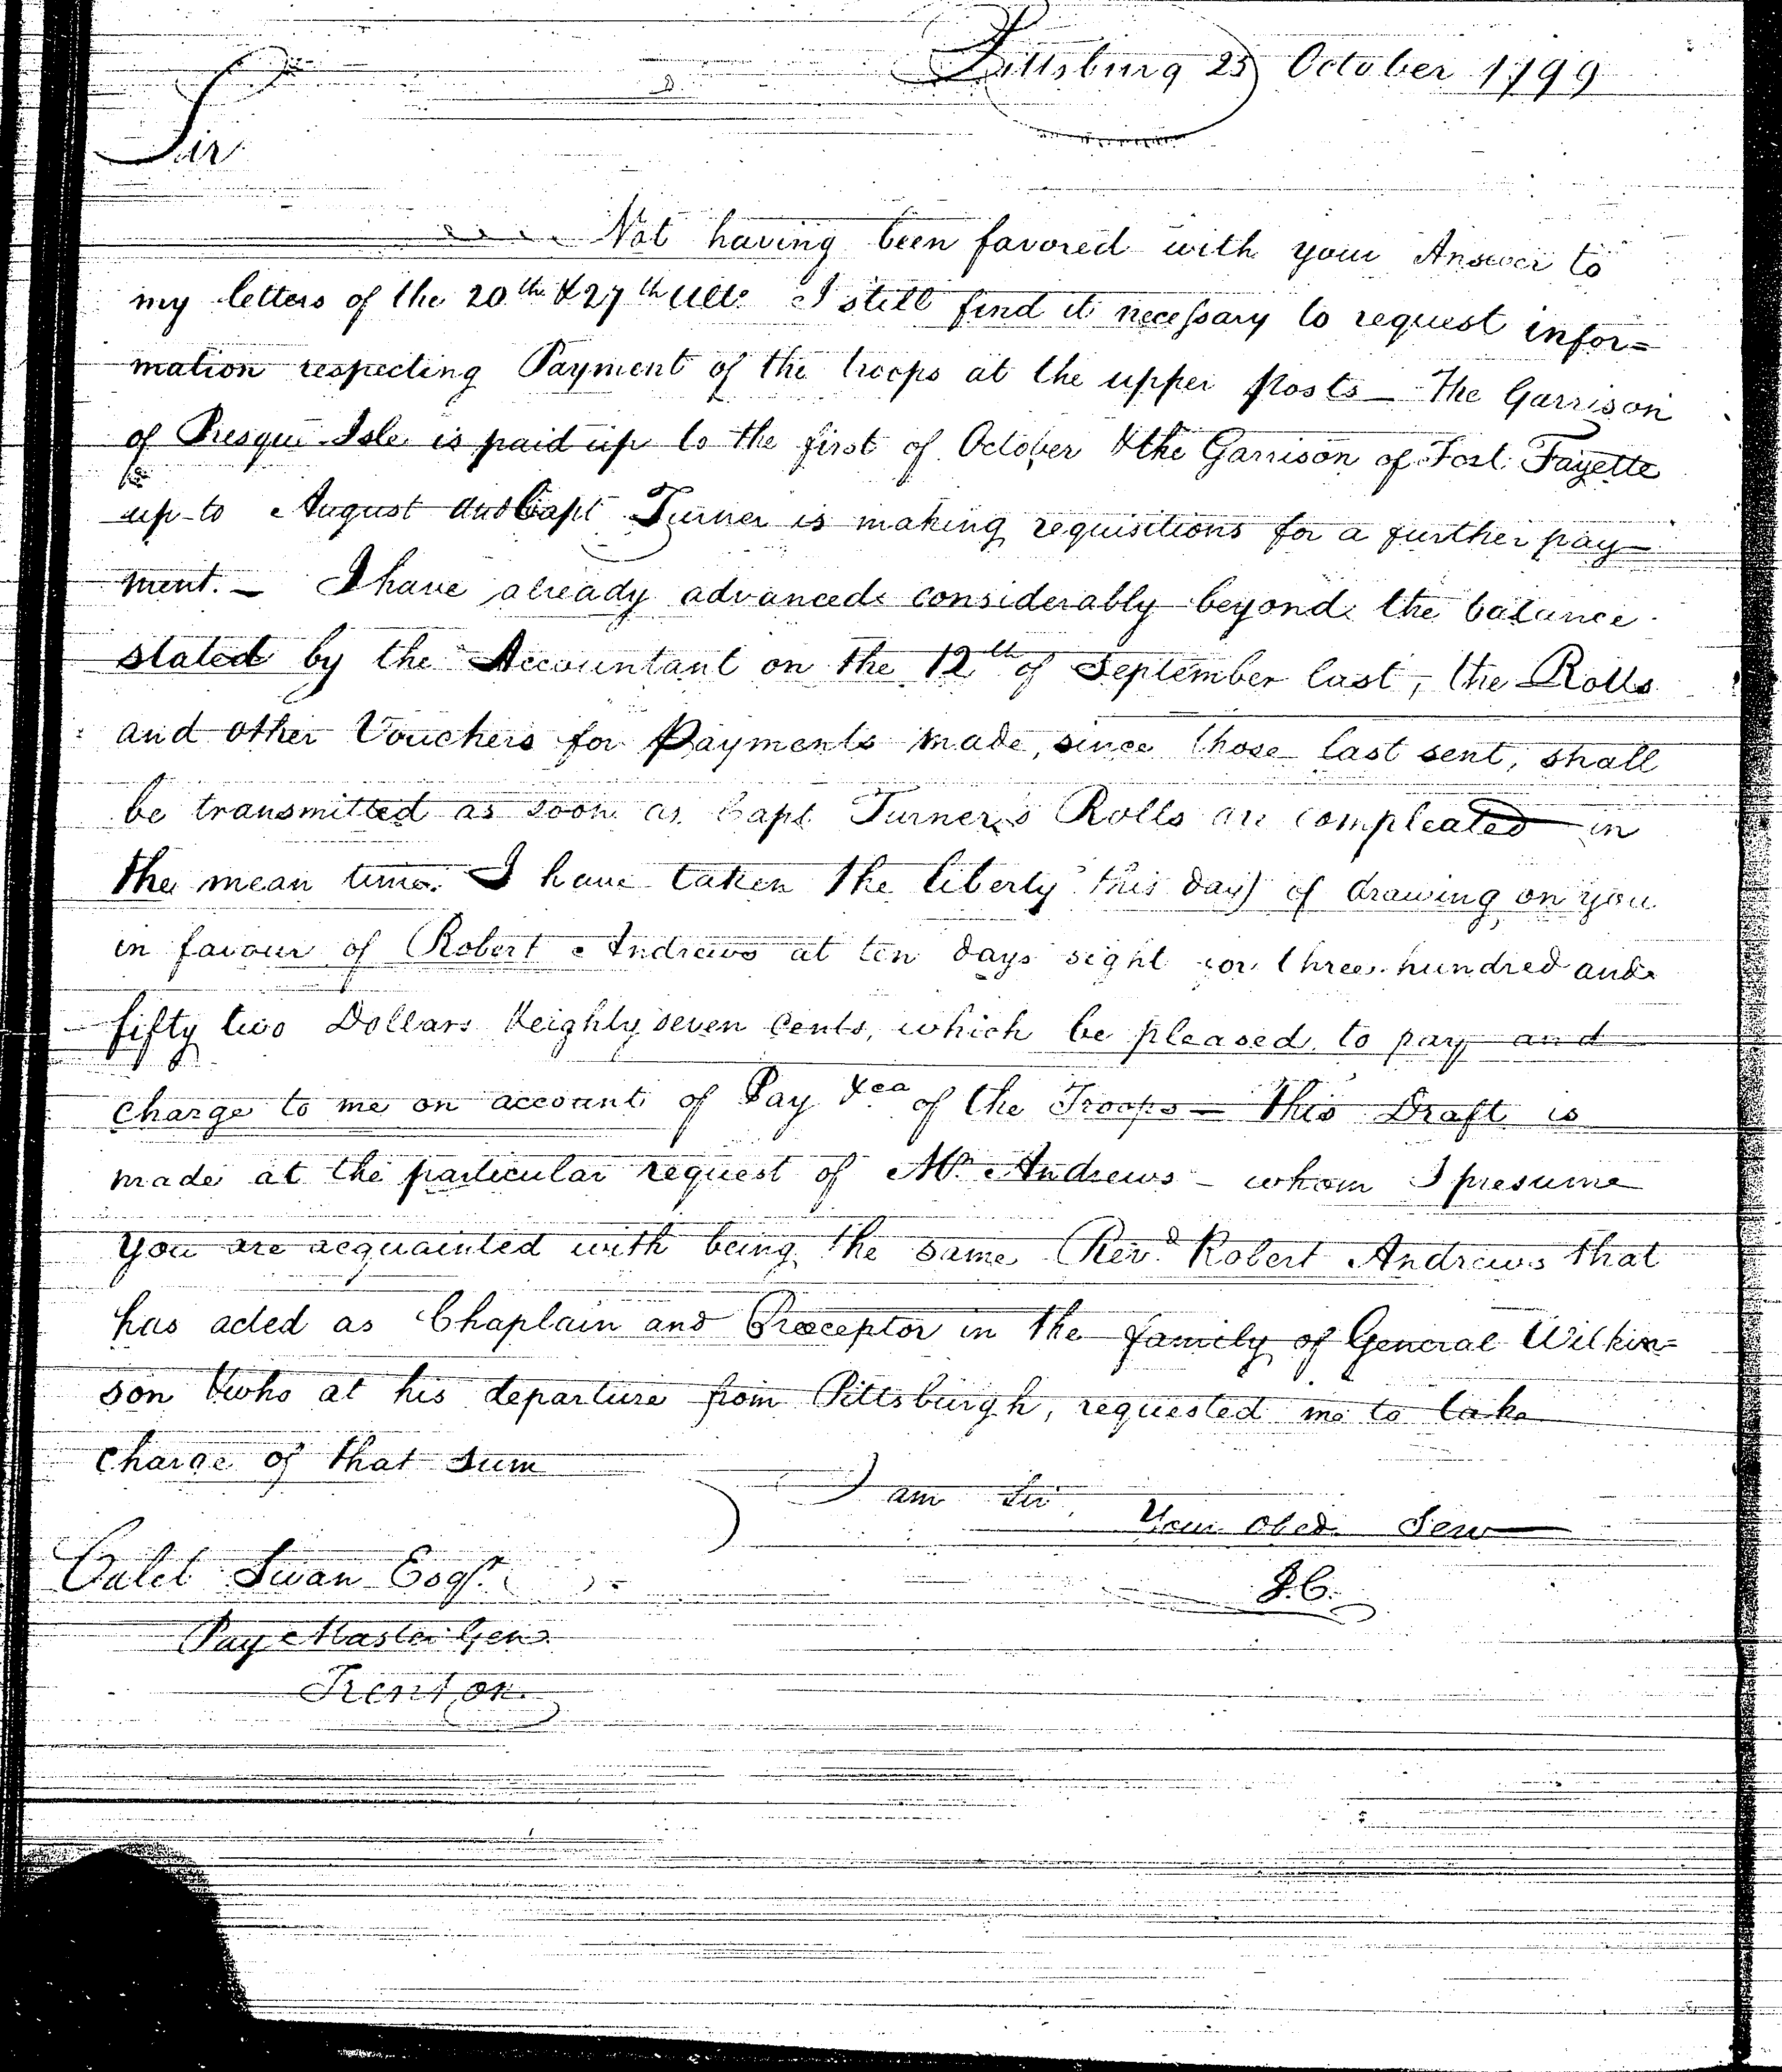 Pittsburg 25 October 1799
Sir
Not having been favored with your Answer to
my letters of the 20th & 27th Ulto I still find it necessary to request infor=
mation respecting Payment of the troops at the upper Posts — The Garrison
of Presqui Isle is paid up to the first of October & the Garrison of Fort Fayette
up to August and Capt Turner is making requisitions for a further pay
ment. — I have already advanced considerably beyond the balance
stated by the Accountant on the 12th of September last, the Rolls
and other Vouchers for Payments made, since those last sent, shall
be transmitted as soon as Capt Turner's Rolls are compleated in
the mean time I have taken the liberty this day of drawing on you
in favour of Robert Andrews at ten days sight for three hundred and
fifty two Dollars & eighty seven Cents, which be pleased to pay and
charge to me on account of Pay &ca of the Troops — This Draft is
made at the particular request of Mr. Andrews — whom I presume
you are acquainted with being the same Revd. Robert Andrews that
has acted as Chaplain and Preceptor in the family of General Wilkin=
son & who at his departure from Pittsburgh, requested me to take
charge of that sum
I am Sir
Your obed. Serv
Caleb Swan Esqr.
J.C.
Pay Master Genl.
Trenton